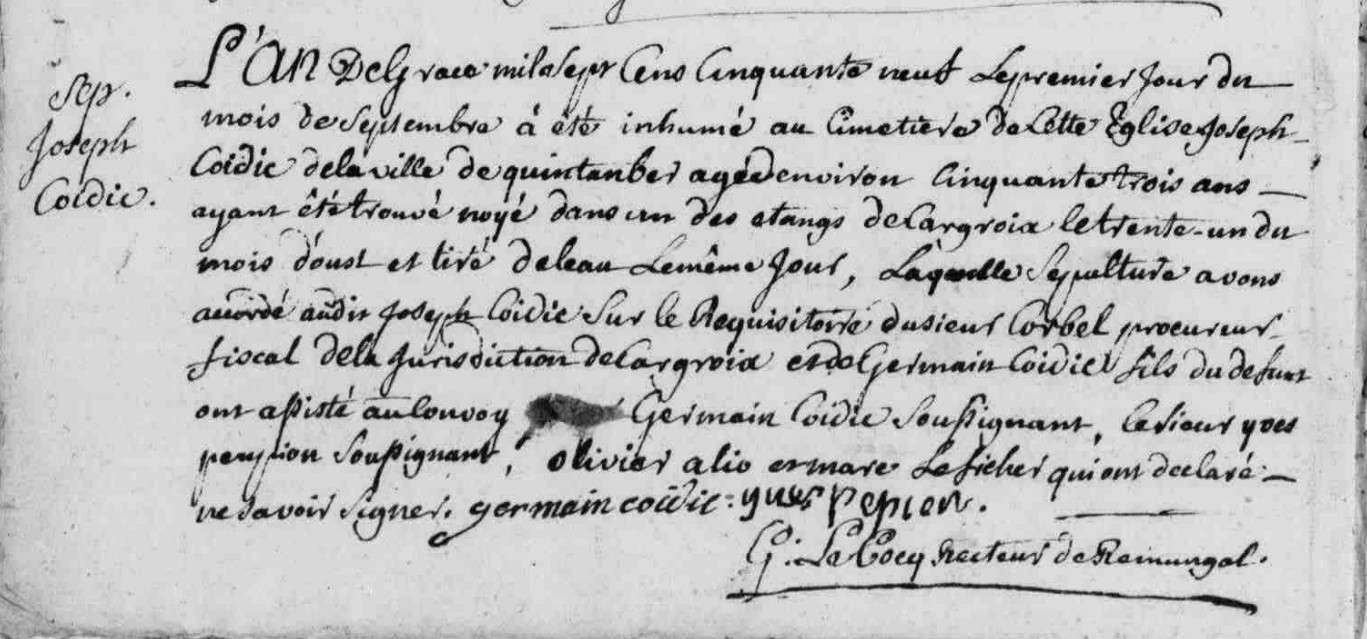 Sep.
Joseph
Coidic.
L'An De Grace mil Sept Cens Cinquante neuf Le premier Jour du
mois de Septembre à été inhumé au Cimetiere de Cette Eglise Joseph
Coidic de la ville de quintanber agé denviron Cinquante trois ans
ayant été trouvé noyé dans un des etangs de Cargroix le trente-un du
mois d'oust et tiré de leau Le même Jour, Laquelle Sepulture avons
accordé audit Joseph Coidic Sur le Requisitoire du sieur Corbel procureur
fiscal de la Jurisdiction de Cargroix et de Germain Coidic fils du defunt
ont assisté au Convoy Germain Coidic Soussignant, le sieur yves
Soussignant, olivier alio et marc Le ficher qui ont declaré
ne Savoir Signer. germain coidic. yves Pepion.
G. Le Cocq Recteur de Remungol.